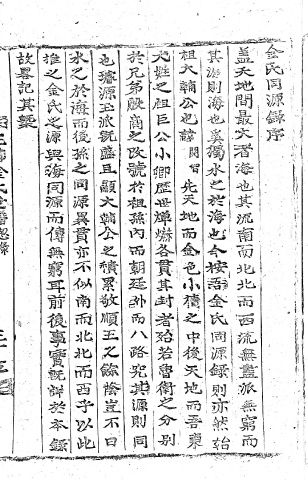 金氏同源錄序
盖天地間最大者海也其流南而北北而西流無盡派無窮而
其源則海也奚獨水之於海也今按吾金氏同源錄則亦然始
祖大輔公也諱閼智先天地而金色小櫝之中後天地而吾東
大姓之祖巨公小卿歷世焯爀各貫其封者殆若魯衛之分別
於兄弟殷商之改號於祖孫內而朝廷外而八路究其源則同
也璿源玉派就盛且顯大輔公之積累敬順王之餘蔭豈不曰
水之於海而後孫之同源異貫亦不似南而北北而西乎以此
推之金氏之源與海同源而傳無窮耳前後事實旣詳於本錄
故畧記其槩